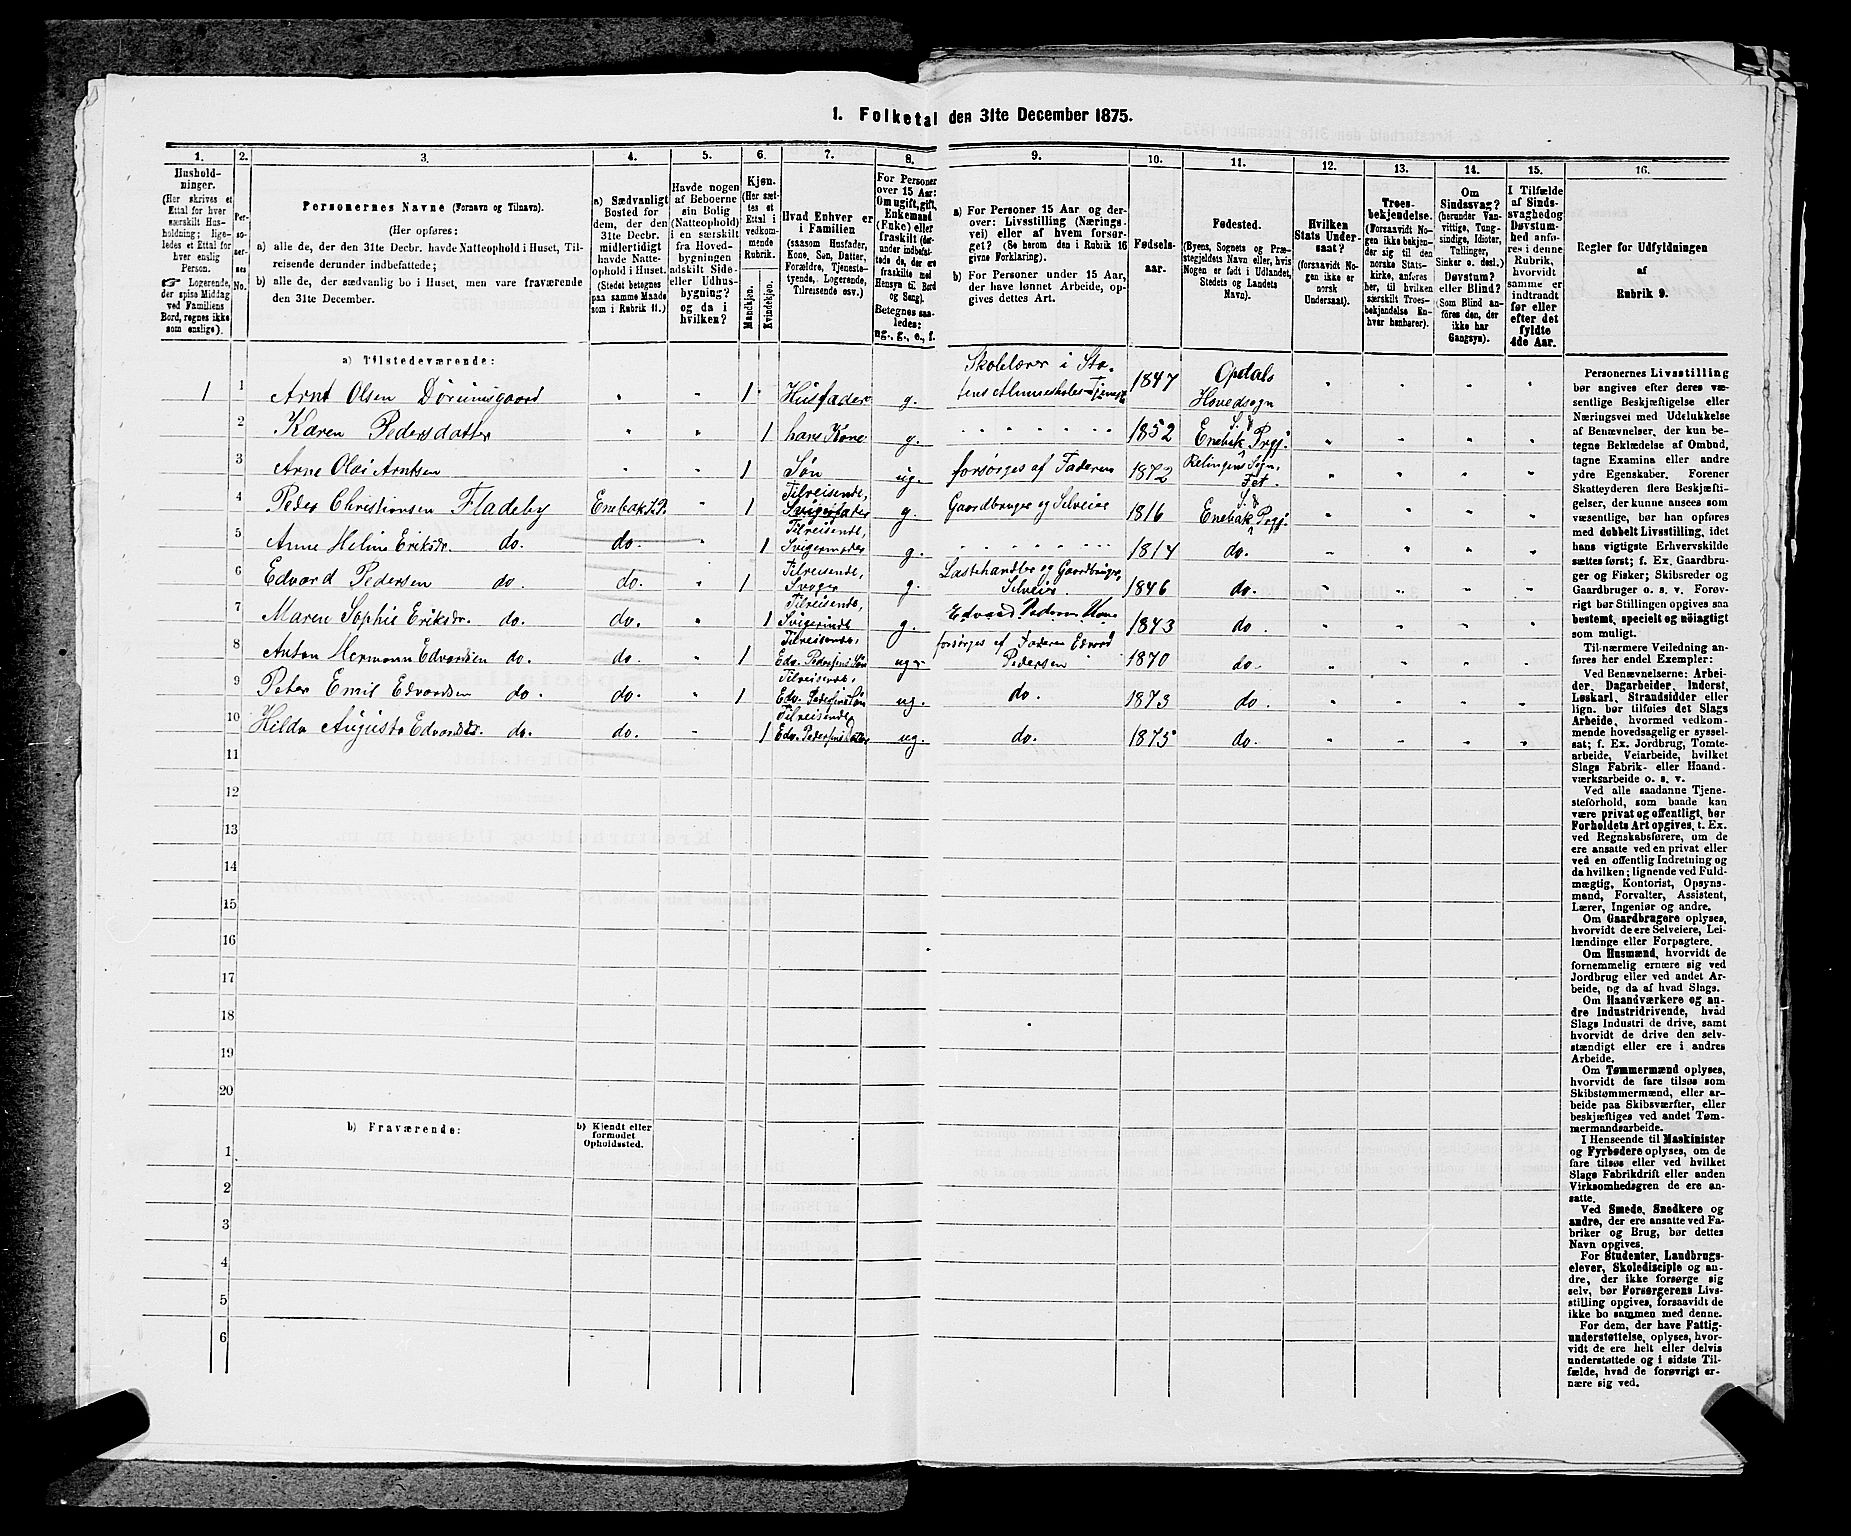 1. Folketal den 31te December 1875.
1. 2. 3. 4. 5. 6. 7. 8. 9. 10. 11. 12. 13. 14. 15. 16.
Husholdninger.
(Her skrives et
Ettal for hver
særskilt Husholdning;
ligeledes et Ettal for
hver enslig
Person.
Logerende,
der spise Middag
ved Familiens
Bord, regnes ikke
som enslige).
Personernes No.
Personernes Navne (Fornavn og Tilnavn).
(Her opføres:
a) alle de, der den 31te Decbr. havde Natteophold i Huset, Tilreisende derunder indbefattede;
b) alle de, der sædvanlig bo i Huset, men vare fraværende
den 31te December.
a) Sædvanligt
Bosted for
dem, der den
31te Decbr.
midlertidigt
havde Natteophold
i Huset.
(Stedet betegnes
paa samme Maade
som i Rubrik 11.)
Havde nogen
af Beboerne
sin Bolig
(Natteophold)
i en særskilt
fra Hovedbygningen
adskilt Side-
eller Udhusbygning?
og da i
hvilken?
Kjøn.
(Her sættes
et
Ettal i
vedkommende
Rubrik.
Mandkjøn.
Kvindekjøn.
Hvad Enhver er
i Familien
(saasom Husfader,
Kone, Søn, Datter,
Forældre, Tjenestetyende,
Logerende,
Tilreisende osv.)
For Personer
over 15 Aar:
Om ugift, gift,
Enkemand
(Enke) eller
fraskilt (derunder
indbefattede
de, der ere
fraskilte med
Hensyn til Bord
og Seng).
Betegnes saaledes:
ug., g., e., f.
a) For Personer 15 Aar og derover:
Livsstilling (Næringsvei)
eller af hvem forsørget?
(Se herom den i Rubrik 16
givne Forklaring).
b) For Personer under 15 Aar,
der have lønnet Arbeide, opgives
dettes Art.
Fødselsaar.
Fødested.
(Byens, Sognets og Præstegjeldets
Navn eller, hvis
Nogen er født i Udlandet,
Stedets og Landets
Navn).
Hvilken
Stats Undersaat?
(forsaavidt Nogen
ikke er
norsk
Undersaat).
Troesbekjendelse.
(Forsaavidt Nogen
ikke bekjender
sig til den
norske Statskirke,
anføres her,
til hvilken
særskilt Troesbekjendelse
Enhver
henhører).
Om
Sindssvag?
(herunder Vanvittige,
Tungsindige,
Idioter,
Tullinger,
Sinker o. desl.)
Døvstum?
eller Blind?
(Som Blind anføres
den, der
ikke har
Gangsyn).
I Tilfælde
af Sindssvaghed
og
Døvstumhed
anføres
i denne
Rubrik,
hvorvidt
samme er
indtraadt
før eller
efter det
fyldte
4de Aar.
Regler for Udfyldningen
af
Rubrik 9.
a) Tilstedeværende:
1 1 Arnt Olsen Dørumsgaard " " 1 Husfader g. Skolelærer i Sta- 1847 Opdals Hovedsogn " " " "
2 Karen Pedersdatter " " 1 hans Kone g. " " " 1852 S. & Enebak Prgj. " " " "
3 Arne Olai Arntsen " " 1 Søn ug. forsørges af Faderen 1872 Relingens Sogn, Fet. " " " "
4 Peder Christiansen Fladeby Enebak S.P. " 1 Tilreisende, Svigerfader g. Gaardbruger og Selveier 1816 S. & Enebak Prgj. " " " "
5 Anne Heline Eriksdr. do. do. " 1 Tilreisende, Svigermoder g. " " " 1814 do. " " " "
6 Edvard Pedersen do. do. " 1 Tilreisende, Svoger g. Lastehandler og Gaardbruger, Selveier. 1846 do. " " " "
7 Maren Sophie Eriksdr. do. do. " 1 Tilreisende, Svigerinde g. Edvard Pedersens Kone 1843 do. " " " "
8 Anton Hermann Edvardsen do. do. " 1 Tilreisende, Edv. Pedersens Søn ug. forsørges af Faderen Edvard Pedersen 1870 do. " " " "
9 Peter Emil Edvardsen do. do. " 1 Tilreisende, Edv. Pedersens Søn ug. do. 1873 do. " " " "
10 Hilda Augusta Edvardsdr. do. do. " 1 Tilreisende, Edv. Pedersens Datter ug. do. 1875 do. " " " "
11
12
13
14
15
16
17
18
19
20
b) Fraværende:
b) Kjendt eller
formodet
Opholdssted.
1
2
3
4
5
6
Personernes Livsstilling
bør angives efter deres væsentlige
Beskjæftigelse eller
Næringsvei med Udelukkelse
af Benævnelser, der kun betegne
Beklædelse af Ombud,
tagne Examina eller andre
ydre Egenskaber. Forener
Skatteyderen flere Beskjæftigelser,
der kunne ansees som
væsentlige, bør han opføres
med dobbelt Livsstilling, idet
hans vigtigste Erhvervskilde
sættes først; f. Ex. Gaardbruger
og Fisker; Skibsreder og
Gaardbruger o. s. v. Forøvrigt
bør Stillingen opgives saa
bestemt, specielt og nöiagtigt
som muligt.
Til nærmere Veiledning anføres
her endel Exempler:
Ved Benævnelserne: Arbeider,
Dagarbeider, Inderst,
Løskarl, Strandsidder eller
lign. bør tilføies det Slags
Arbeide, hvormed vedkommende
hovedsagelig er sysselsat;
f. Ex. Jordbrug, Tomtearbeide,
Veiarbeide, hvilket
Slags Fabrik- eller Haandværksarbeide
o. s. v.
Ved alle saadanne Tjenesteforhold,
som baade kan
være privat og offentligt, bør
Forholdets Art opgives, t. Ex.
ved Regnskabsførere, om de
ere ansatte ved en privat eller
ved en offentlig Indretning og
da hvilken; lignende ved Fuldmægtig,
Kontorist, Opsynsmand,
Forvalter, Assistent,
Lærer, Ingeniør og andre.
Om Gaardbrugere oplyses,
hvorvidt de ere Selveiere, Leilændinge
eller Forpagtere.
Om Husmænd, hvorvidt de
fornemmelig ernære sig ved
Jordbrug eller ved andet Arbeide,
og da af hvad Slags.
Om Haandværkere og andre
Industridrivende, hvad
Slags Industri de drive, samt
hvorvidt de drive den selvstændigt
eller ere i andres
Arbeide.
Om Tømmermænd oplyses,
hvorvidt de fare tilsøs som
Skibstømmermænd, eller arbeide
paa Skibsværfter, eller
beskjæftiges ved andet Tømmermandsarbeide.
I Henseende til Maskinister
og Fyrbødere oplyses, om de
fare tilsøs eller ved hvilket
Slags Fabrikdrift eller anden
Virksomhedsgren de ere ansatte.
Ved Smede, Snedkere og
andre, der ere ansatte ved Fabriker
og Brug, bør dettes
Navn opgives.
For Studenter, Landbrugselever,
Skoledisciple og andre,
der ikke forsørge sig
selv, bør Forsørgerens Livsstilling
opgives, forsaavidt de
ikke bo sammen med denne.
For dem, der have Fattigunderstøttelse,
oplyses, hvorvidt
de ere helt eller delvis
understøttede og i sidste Tilfælde,
hvad de forøvrigt ernære
sig ved.